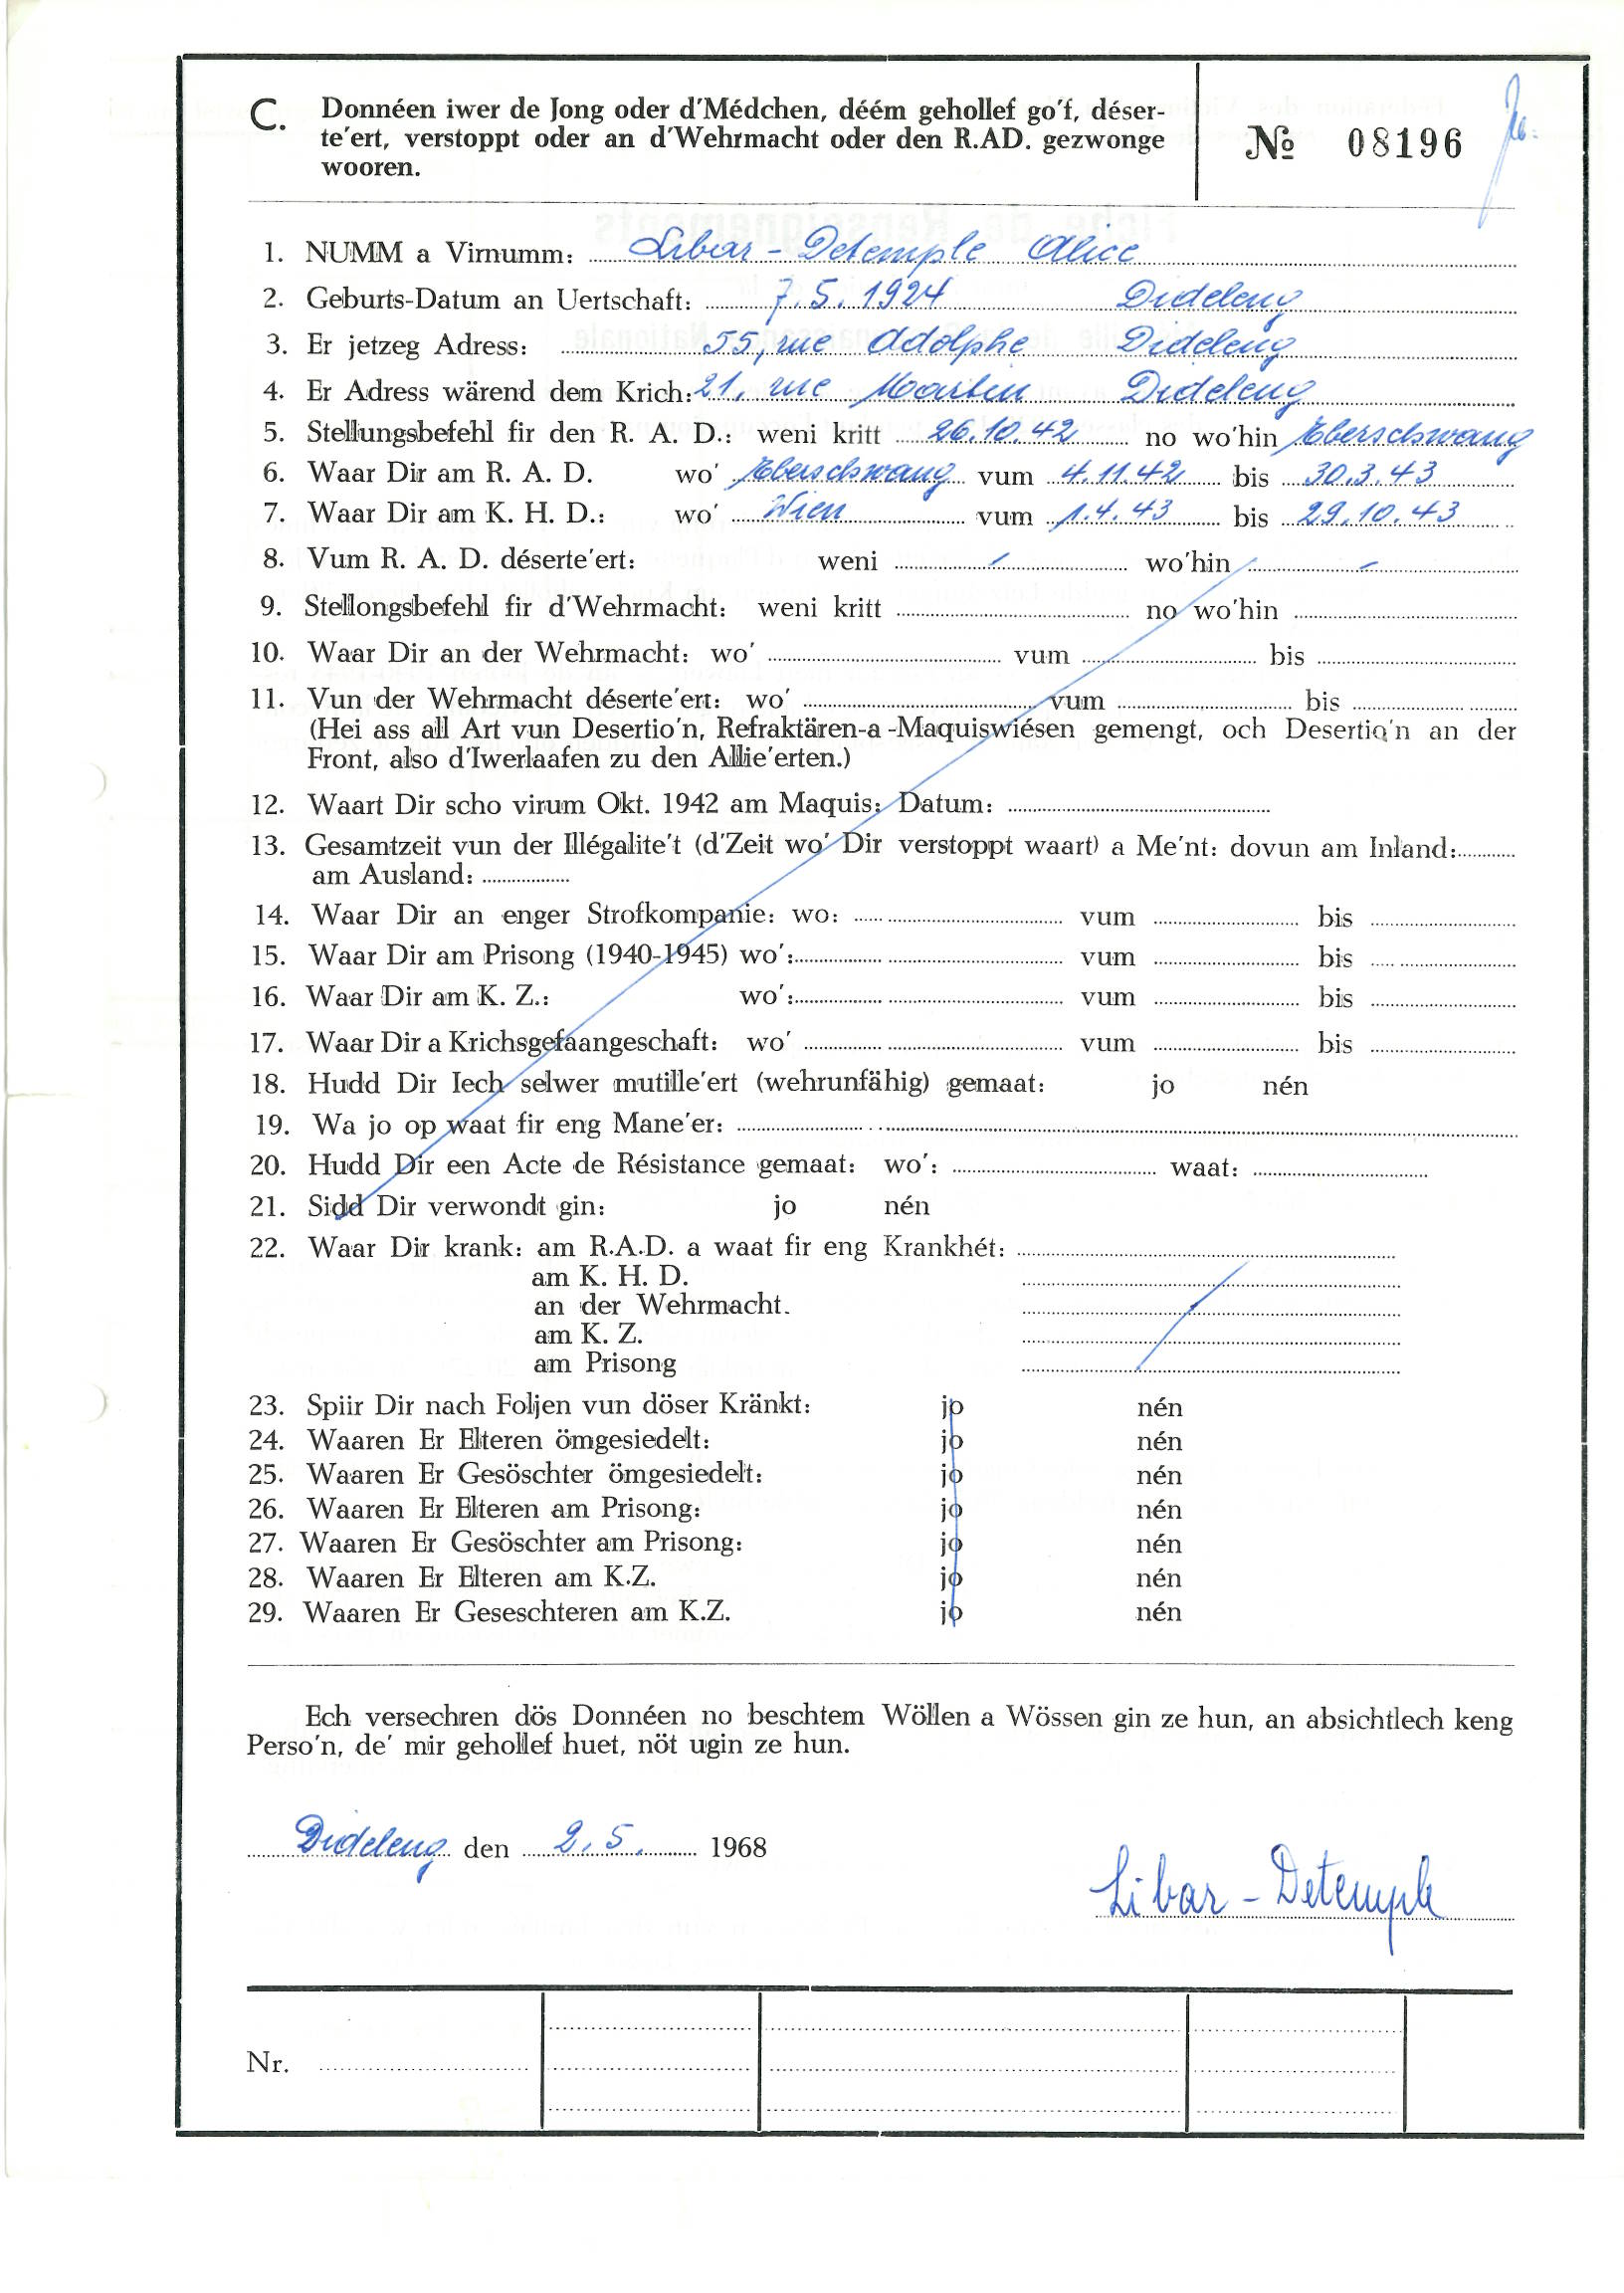 C. Donnéen iwer de Jong oder d'Médchen, déém gehollef go'f, déser-
te'ert, verstoppt oder an d'Wehrmacht oder den R.AD. gezwonge
wooren.
№ 08196
1. NUMM a Virnumm: Libar - Detemple Alice
2. Geburts-Datum an Uertschaft: 7.5.1924 Dideleng
3. Er jetzeg Adress: 55, rue Adolphe Dideleng
4. Er Adress wärend dem Krich: 21, rue Martin Dideleng
5. Stellungsbefehl fir den R. A. D.: weni kritt 26.10.42 no wo'hin Eberschwang
6. Waar Dir am R. A. D. wo' Eberschwang vum 4.11.42 bis 30.3.43
7. Waar Dir am K. H. D.: wo' Wien vum 1.4.43 bis 29.10.43
8. Vum R. A. D. déserte'ert: weni - wo'hin -
9. Stellongsbefehl fir d'Wehrmacht: weni kritt no wo'hin
10. Waar Dir an der Wehrmacht: wo' vum bis
11. Vun der Wehrmacht déserte'ert: wo' vum bis
(Hei ass all Art vun Desertio'n, Refraktären-a-Maquiswiésen gemengt, och Desertio'n an der
Front, also d'Iwerlaafen zu den Allie'erten.)
12. Waart Dir scho virum Okt. 1942 am Maquis: Datum:
13. Gesamtzeit vun der Illégalite't (d'Zeit wo' Dir verstoppt waart) a Me'nt: dovun am Inland:
am Ausland:
14. Waar Dir an enger Strofkompanie: wo: vum bis
15. Waar Dir am Prisong (1940-1945) wo': vum bis
16. Waar Dir am K. Z.: wo': vum bis
17. Waar Dir a Krichsgefaangeschaft: wo' vum bis
18. Hudd Dir Iech selwer mutille'ert (wehrunfähig) gemaat: jo nén
19. Wa jo op waat fir eng Mane'er:
20. Hudd Dir een Acte de Résistance gemaat: wo': waat:
21. Sidd Dir verwondt gin: jo nén
22. Waar Dir krank: am R.A.D. a waat fir eng Krankhét:
am K. H. D.
an der Wehrmacht.
am K. Z.
am Prisong
23. Spiir Dir nach Foljen vun döser Kränkt: jo nén
24. Waaren Er Elteren ömgesiedelt: jo nén
25. Waaren Er Gesöschter ömgesiedelt: jo nén
26. Waaren Er Elteren am Prisong: jo nén
27. Waaren Er Gesöschter am Prisong: jo nén
28. Waaren Er Elteren am K.Z. jo nén
29. Waaren Er Geseschteren am K.Z. jo nén
Ech versechren dös Donnéen no beschtem Wöllen a Wössen gin ze hun, an absichtlech keng
Perso'n, de' mir gehollef huet, nöt ugin ze hun.
Dideleng den 2.5. 1968
Libar - Detemple
Nr.